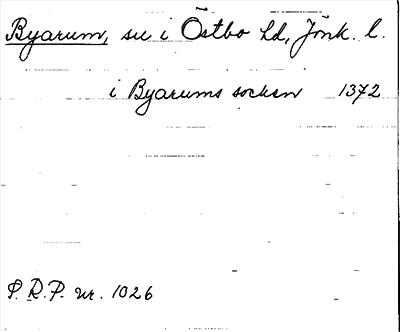 Byarum, sn i Östbo hd, Jönk. l.
i Byarums socken 1372
S.R.P. nr. 1026